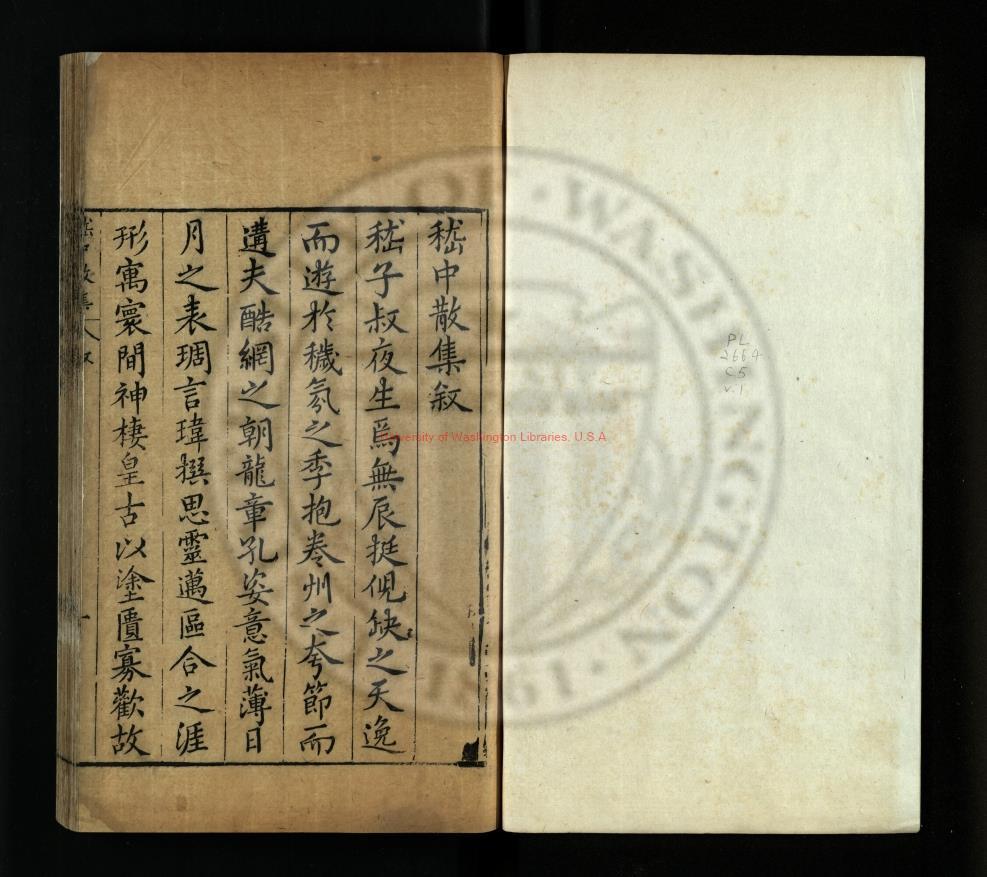 嵇中散集叙
嵇子叔夜生焉無辰挺俔缺之天逸
而遊於穢氛之季抱卷州之夸節而
遘夫酷網之朝龍章孔姿意氣薄日
月之表琱言瑋撰思靈邁區合之涯
形寓寰間神棲皇古以塗匱寡歡故
一
PL
2664
C5
v.1
University of Washington Libraries, U.S.A
WASHINGTON
1861